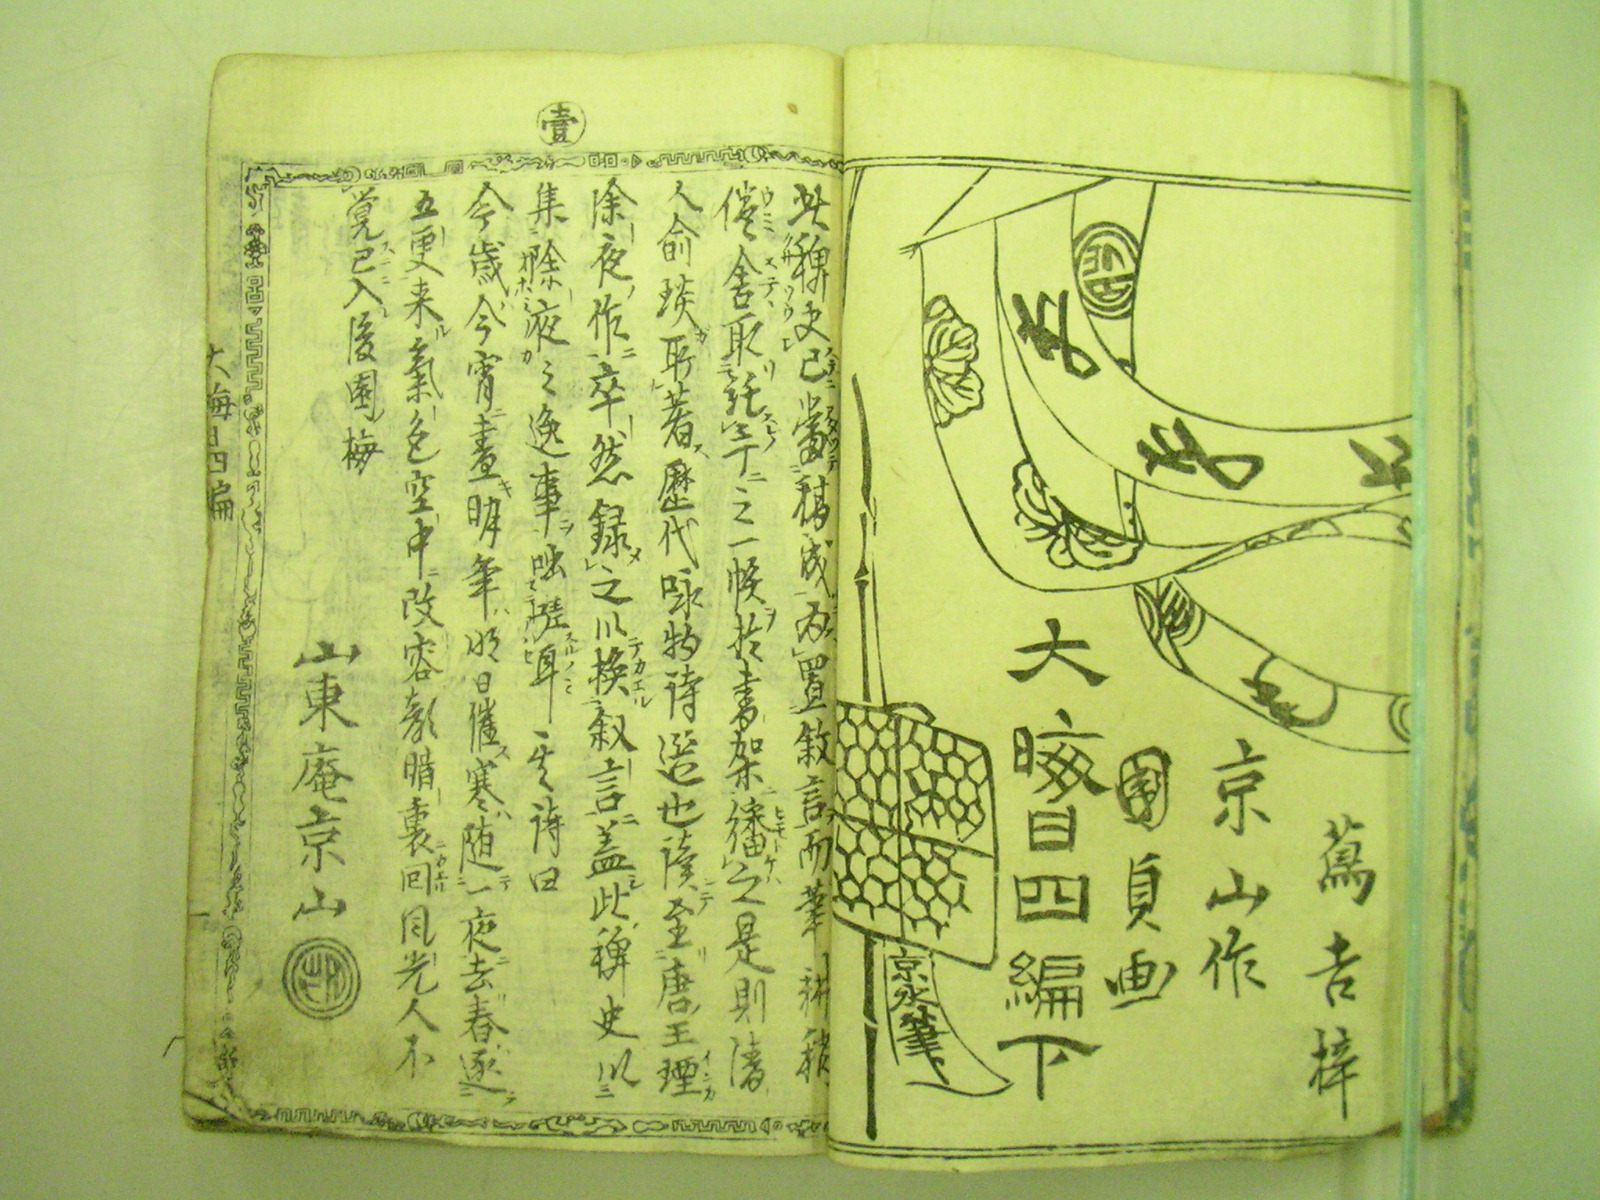 蔦吉梓
京山作
國貞画
大晦日四編下
京水筆
壹
此稗史已當稿成為置敘言而筆耕
倦舍取託于之一帳於書架繙之是則清
人俞琰所著歴代咏物詩選也讀至唐王諲
除夜作卒然録之以換叙言蓋此稗史以
集除夜之逸事咄 耳 其詩曰
今歳今宵盡明年明日催寒随一夜去春逐
五更来氣色空中改容顔暗裏回風光人不
覚已入後園梅
山東庵京山
大晦日四編